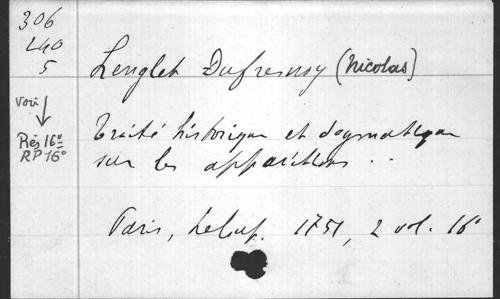 306
240
5
voir
Rés 16º
RP 16º
Lenglet Dufresnoy (Nicolas)
Traité historique et dogmatique
sur les apparitions ..
Paris, Leloup. 1751, 2 vol. 16º